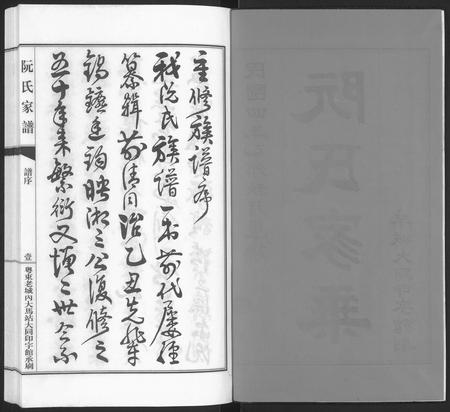 重修族譜序
我阮氏族譜一書前代屢經
纂輯前清同治乙丑先輩
錫鑣廷鈞映湘三公復修之
五十年來繁衍又增二世今不
阮氏家譜
譜序
壹
粵東老城內大馬站大同印字館承刷
阮氏家乘